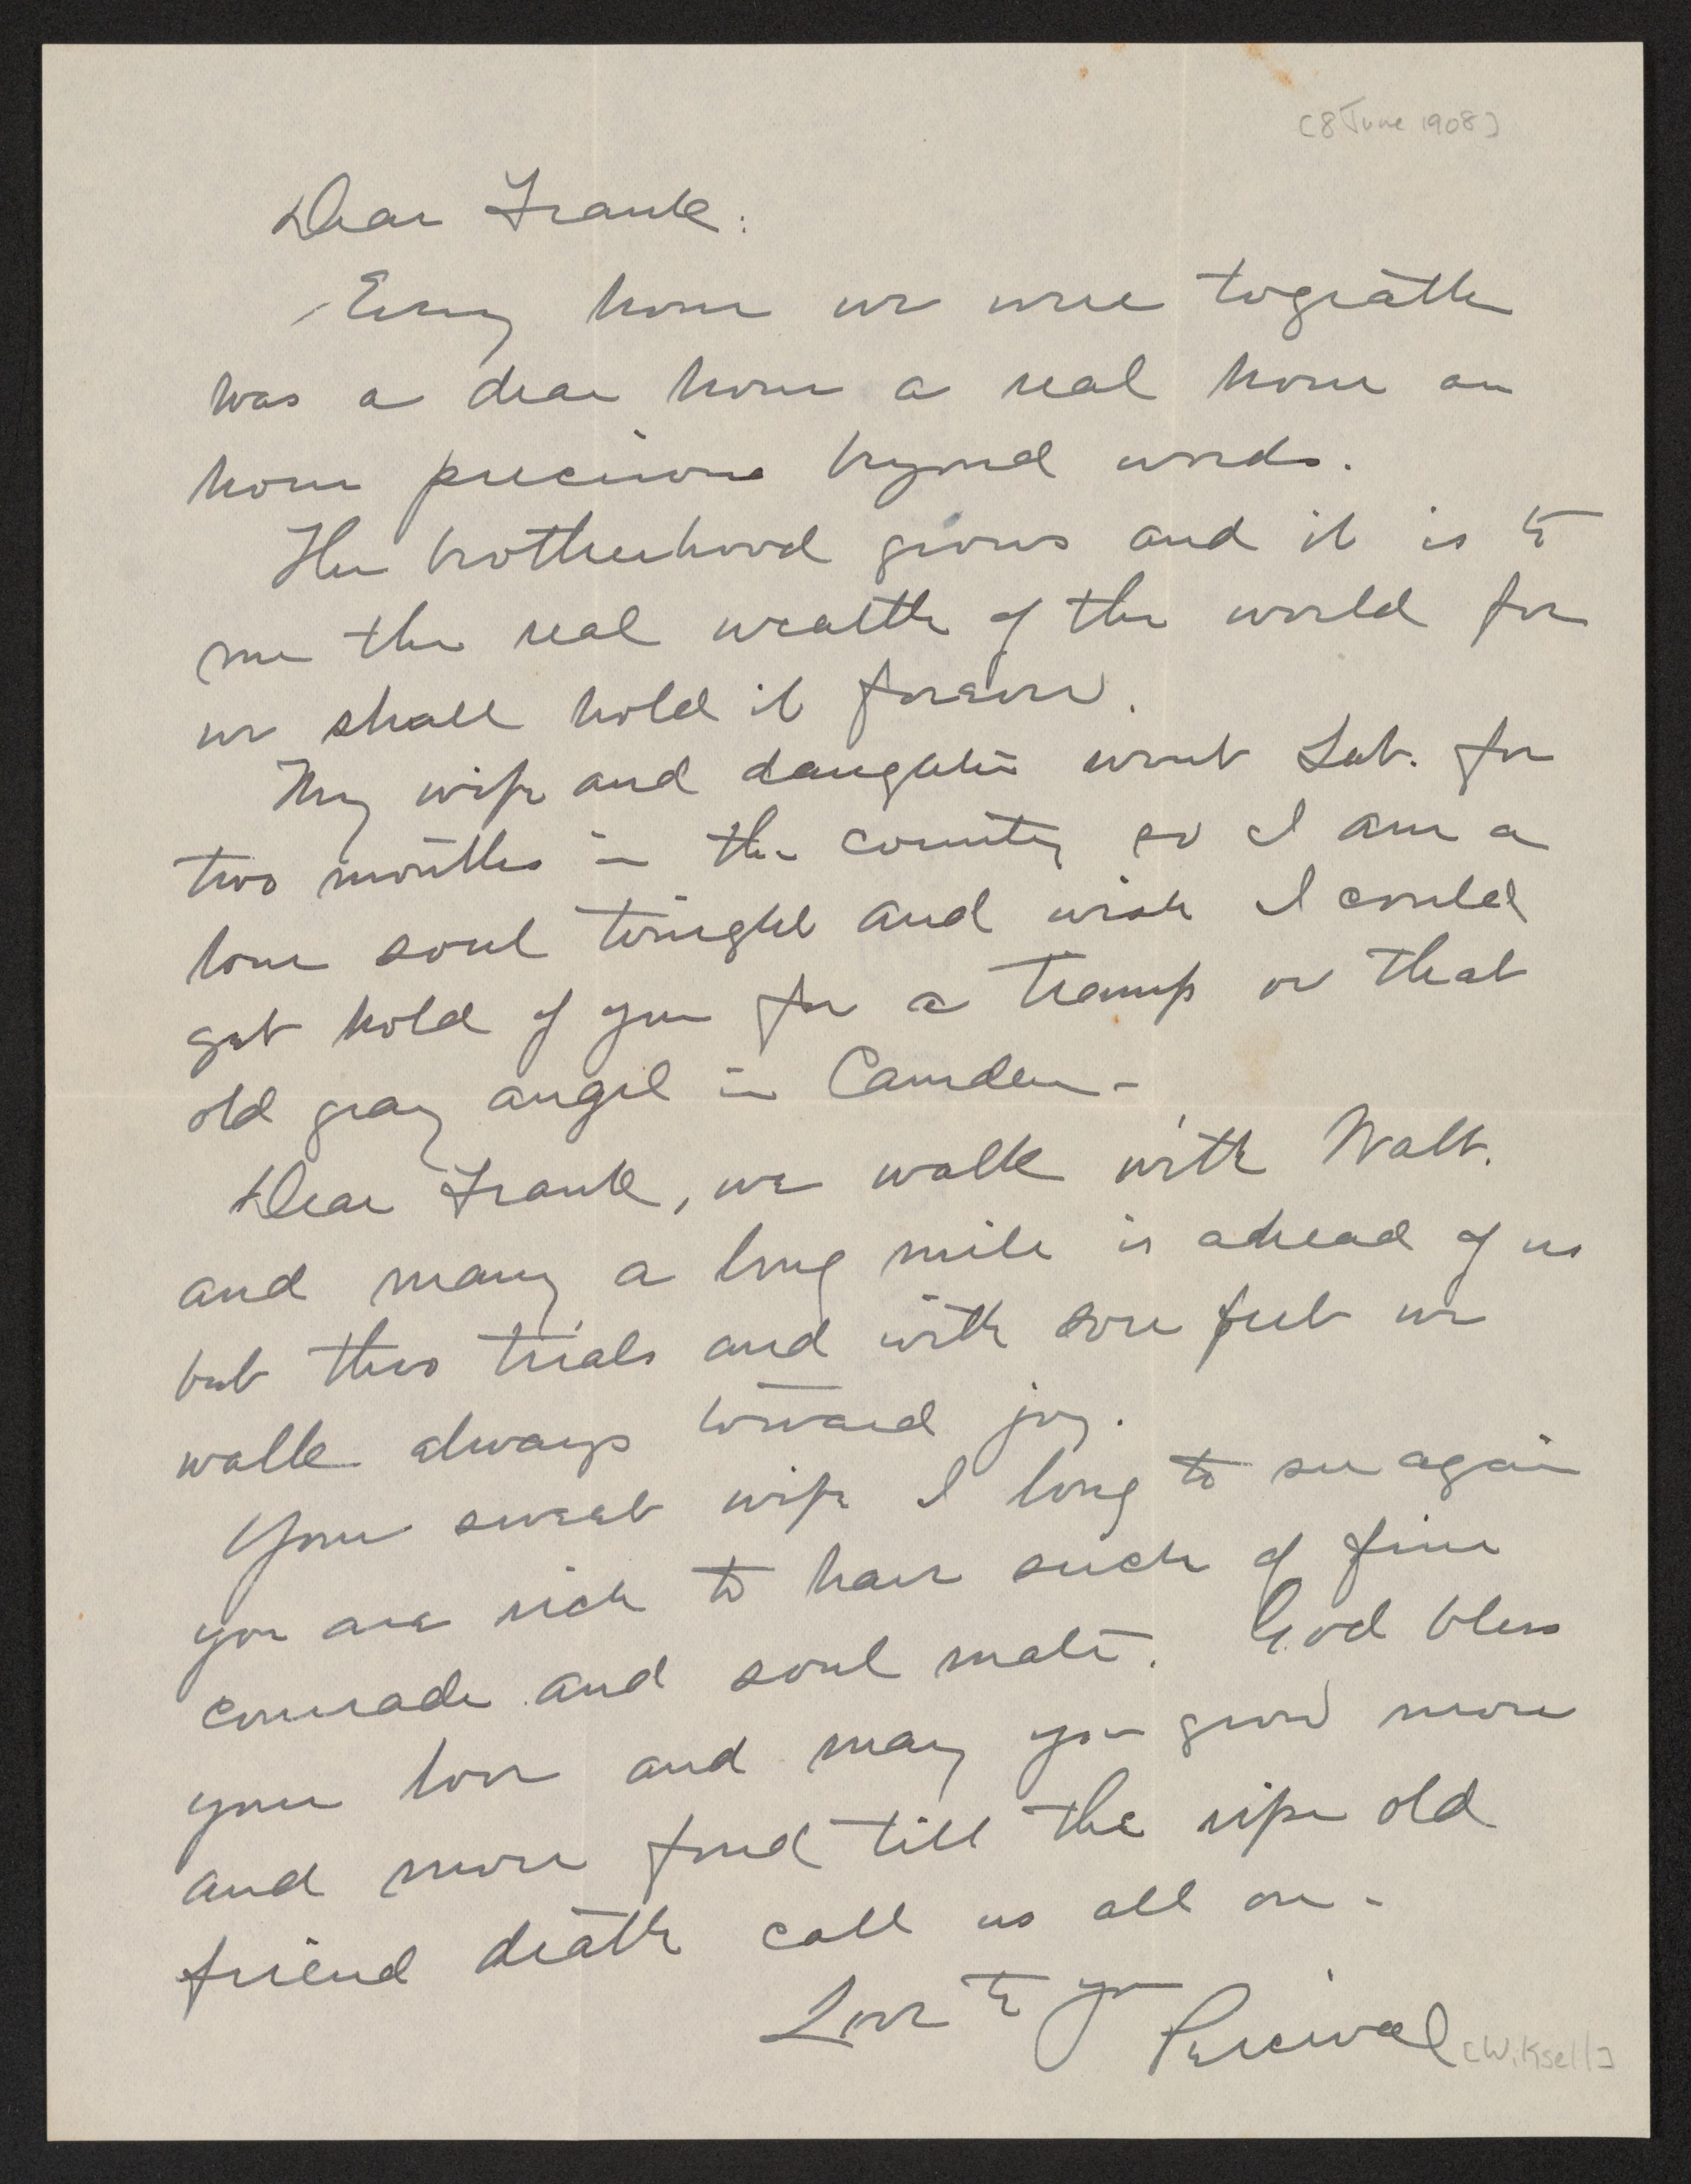 [8 June 1908]
Dear Frank:
Every hour we were togeather
was a dear hour a real hour an
hour precious beyond words.
The brotherhood grows and it is to
me the real wealth of the world for
we shall hold it forever.
My wife and daughter went Sat. for
two months in the country so I am a
lone soul tonight and wish I could
get hold of you for a tramp or that
old gray angel in Camden -
Dear Frank, we walk with Walt.
and many a long mile is ahead of us
but thro trials and with sore feet we
walk always toward joy.
Your sweet wife I long to see again
you are rich to have such of fine
comrade and soul mate. God bless
your love and may you grow more
and more fond till the ripe old
friend death call us all on -
Love to you
Percival [Wiksell]